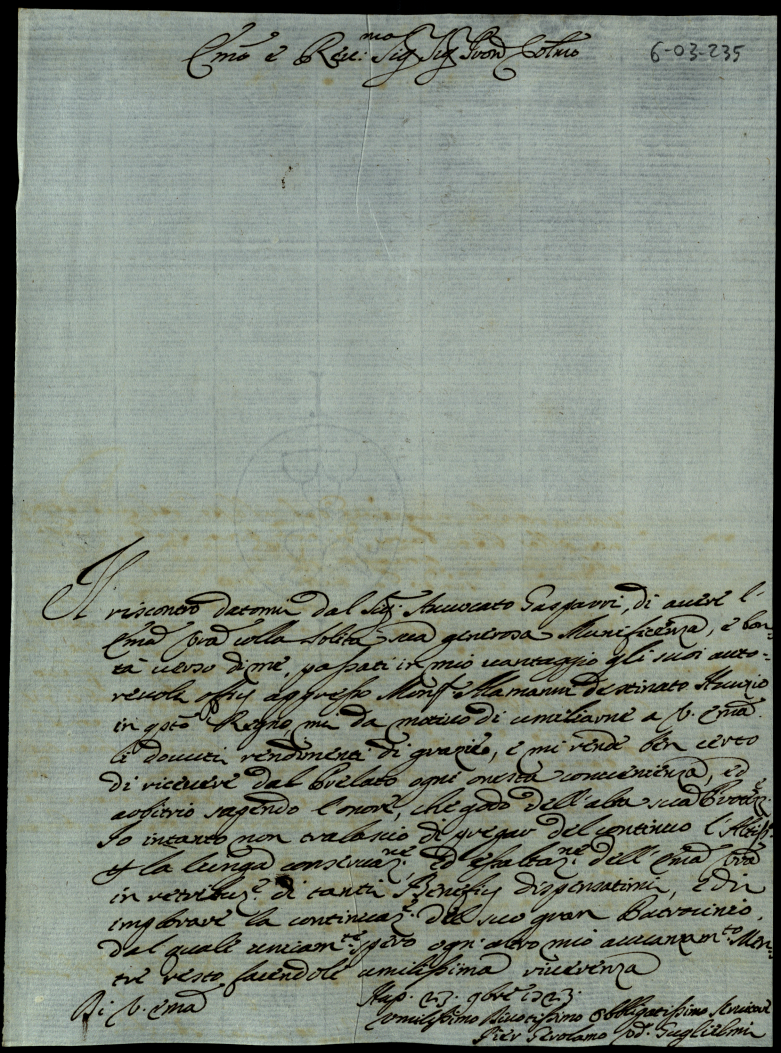 Emō e Reu:mo Sig Sig Pron Colmo
6-03-235
Il riscontro datomi dal Sig: Auuocato Gasparri, di auere l'
Emā Vrā colla solita sua generosa Munificenza, e bon=
tà uerso di me, passati in mio uantaggio gli suoi auto=
reuoli offij appresso Monsr Alamanni destinato Nunzio
in qsto Regno, mi da motiuo di umiliarne a V. Emā
li douuti rendimenti di grazie, e mi rende ben certo
di riceuere dal Prelato ogni onesta conuenienza, ed
arbitrio sapendo l'onore, che godo dell'alta sua Protezne
Io intanto non tralascio di pregar del continuo l'Altissmo
la lunga conseruazne, ed esaltazne dell'Emā Vrā
in retribuzne di tanti Beneficij dispensatimi, e di
implorare la continuazne del suo gran Patrocinio,
dal quale unicamte spero ogni altro mio auuanzamto Men=
tre resto facendole umilissima riuerenza
Di V. Emā
Nap. 23. 9bre 1723.
Umilissimo Diuotissimo Obbligatissimo Seruitore
Pier Gerolamo Guglielmi